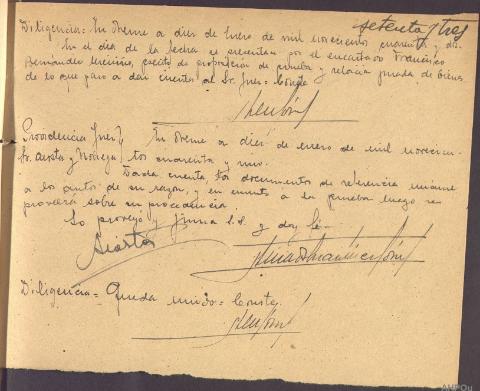 setenta y tres
Diligencia = En Orense a diez de Enero de mil novecientos cuarenta y
En el día de la fecha es presentado por el encartado Francisco
escrito de proposición de prueba y relación jurada de bienes
de lo que paso a dar cuenta al Sr. Juez = Conste
Providencia Juez En Orense a diez de enero de mil novecien-
Sr. Acosta y Noriega tos cuarenta y uno.
Dada cuenta, los documentos de referencia únanse
a los autos de su razón, y en cuanto a la prueba luego se
proveerá sobre su procedencia.
Lo proveyó y firma S.S. y doy fe =
Diligencia = Queda unido = Conste
AHPOu